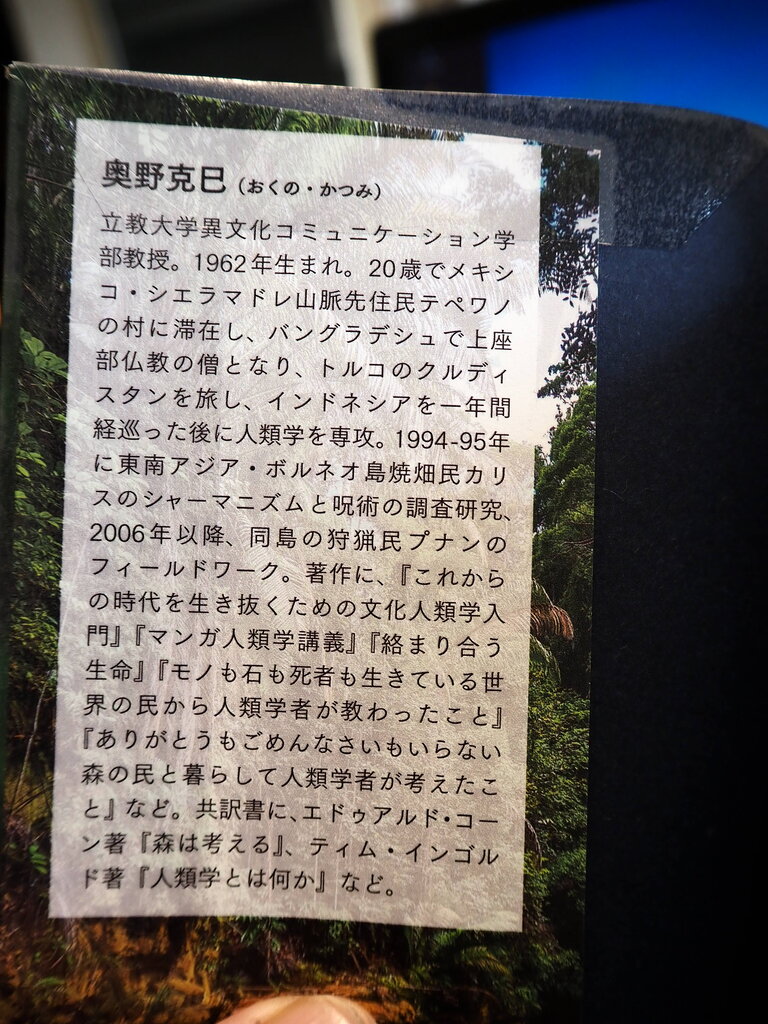 奥野克巳（おくの・かつみ）
立教大学異文化コミュニケーション学
部教授。1962年生まれ。20歳でメキシ
コ・シエラマドレ山脈先住民テペワノ
の村に滞在し、バングラデシュで上座
部仏教の僧となり、トルコのクルディ
スタンを旅し、インドネシアを一年間
経巡った後に人類学を専攻。1994-95年
に東南アジア・ボルネオ島焼畑民カリ
スのシャーマニズムと呪術の調査研究、
2006年以降、同島の狩猟民プナンの
フィールドワーク。著作に、『これから
の時代を生き抜くための文化人類学入
門』『マンガ人類学講義』『絡まり合う
生命』『モノも石も死者も生きている世
界の民から人類学者が教わったこと』
『ありがとうもごめんなさいもいらない
森の民と暮らして人類学者が考えたこ
と』など。共訳書に、エドゥアルド・コー
ン著『森は考える』、ティム・インゴル
ド著『人類学とは何か』など。